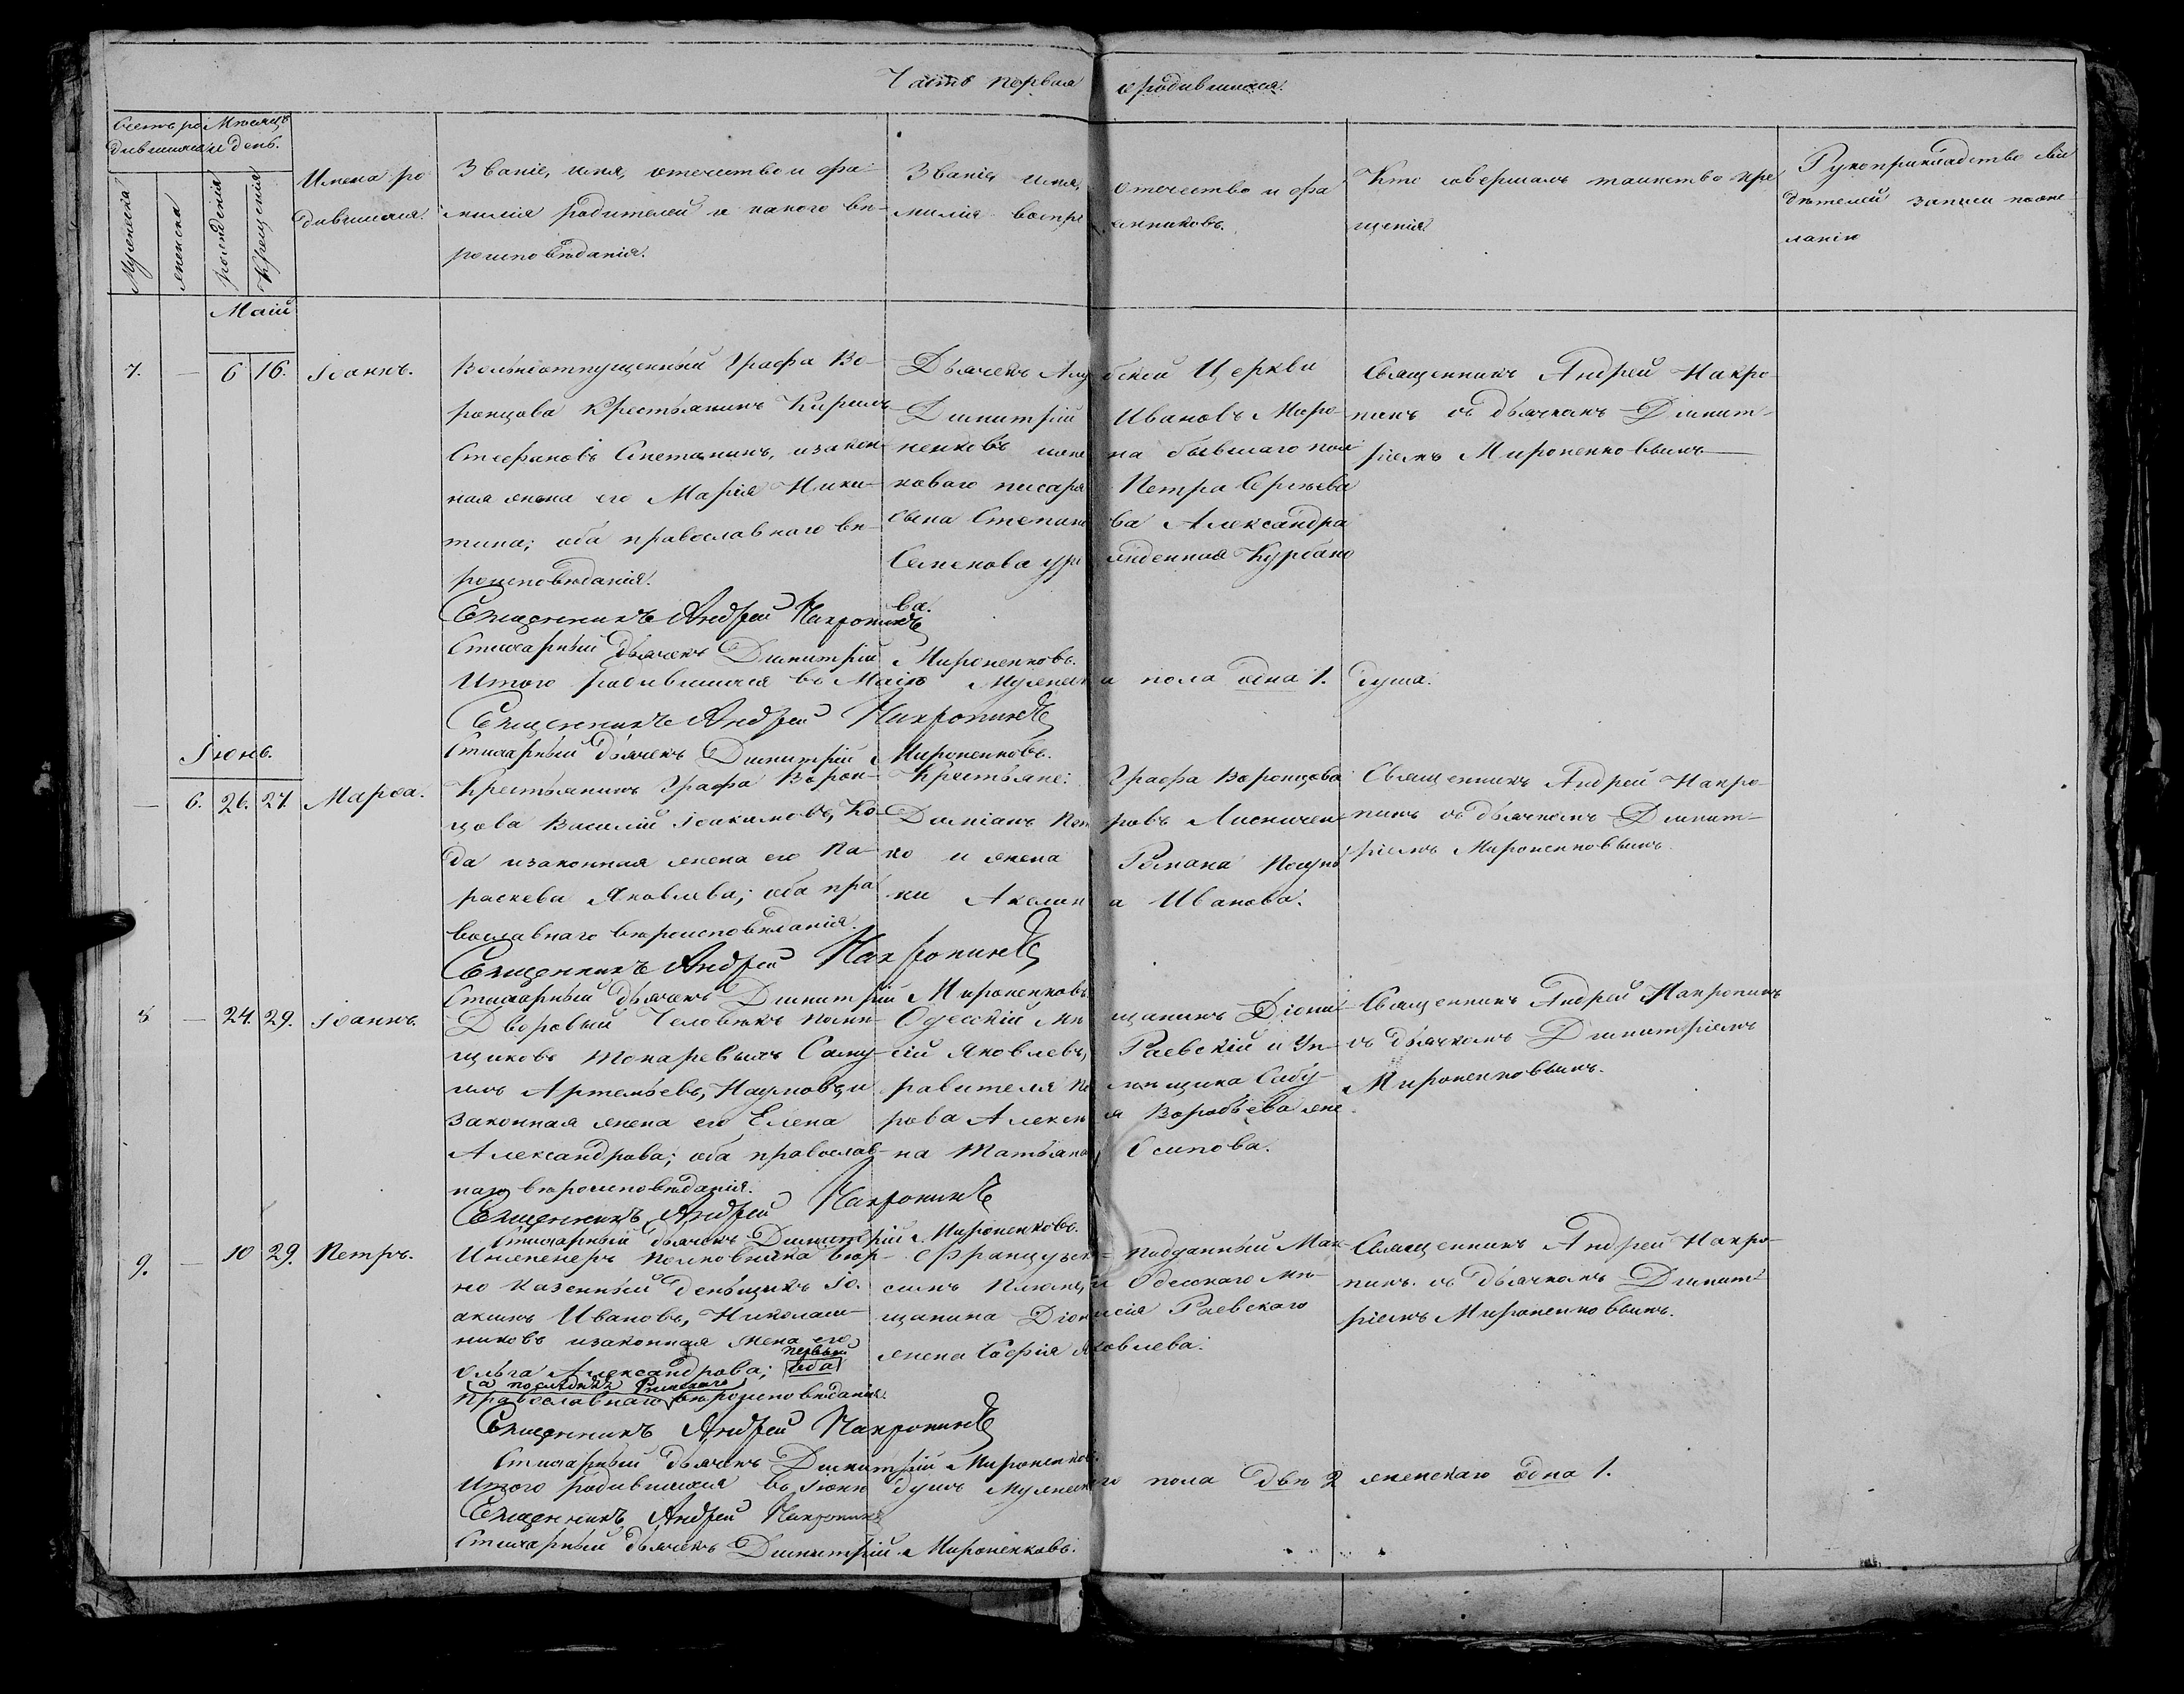 Часть первая о родившихся.
Счетъ ро
дившихся
Мѣсяцъ
и день.
Мужеска
женска
рожденія
Крещенія
Имена ро
дившихся.
Званіе, имя, отечество и фа-
милія родителей и какого вѣ-
роисповѣданія.
Званіе имя, отечество и фа
милія воспріемниковъ.
Кто совершалъ таинство кре
щенія
Рукоприкладство сви
дѣтелей записи по же-
ланію
Маій
7. — 6 16. Іоаннъ.
Вольноотпущенный Графа Во-
ронцова Крестьянинъ Кирилъ
Стефановъ Сметанинъ, и закон-
ная жена его Марія Ники-
тина; оба православнаго вѣ-
роисповѣданія.
Дьячекъ Алу бской Церкви
Димитрій Ивановъ Миро-
ненковъ и жена бывшаго пол
коваго писаря Петра Сергѣева
сына Степанова Александра
Семенова урожденная Курбано
ва.
Священникъ Андрей Накро-
пинъ съ дьячкомъ Димит-
ріемъ Мироненковымъ
Священникъ Андрей Накропинъ
Стихарный дьячекъ Димитрій Мироненковъ.
Итого родившихся въ Маіѣ Мужеска пола одна 1. душа.
Священникъ Андрей Накропинъ
Стихарный дьячекъ Димитрій Мироненковъ.
Іюнь.
— 6. 26. 27. Марѳа.
Крестьянинъ Графа Ворон-
цова Василій Іоакимовъ, Ко-
ва и законная жена его Па-
раскева Яковлева; оба пра
вославнаго вѣроисповѣданія.
Крестьяне: Графа Воронцова
Даміанъ Петровъ Лисничен-
ко и жена Романа
ки Акилина Иванова.
Священникъ Андрей Накро-
пинъ съ дьячкомъ Димит-
ріемъ Мироненковымъ.
Священникъ Андрей Накропинъ
Стихарный дьячекъ Димитрій Мироненковъ.
8 — 24. 29. Іоаннъ.
Дворовый Человѣкъ помѣ-
щиковъ Токаревыхъ Саму-
илъ Артемьевъ, Наумовъ и
законная жена его Елена
Александрова; оба православ-
наго вѣроисповѣданія.
Одесскій мѣщанинъ Діони-
сій Яковлевъ, Раевскій и Уп-
равителя помѣщика Сабу-
рова Алексея Воробьева же-
на Татьяна Осипова.
Священникъ Андрей Накропинъ
съ дьячкомъ Димитріемъ
Мироненковымъ.
Священникъ Андрей Накропинъ
Стихарный дьячекъ Димитрій Мироненковъ.
9. — 10 29. Петръ.
Инженеръ Полковника Бюр-
но казенный деньщикъ Іо-
акимъ Ивановъ, Николаш-
никовъ и законная жена его
Ольга Александрова; оба первый
а послѣдняя Римскаго
православнаго вѣроисповѣданія.
Французско-подданный Мак-
симъ и Одесскаго мѣ-
щанина Діонисія Раевскаго
жена Софія Яковлева.
Священникъ Андрей Накро-
пинъ. съ дьячкомъ Димит-
ріемъ Мироненковымъ.
Священникъ Андрей Накропинъ
Стихарный дьячекъ Димитрій Мироненковъ.
Итого родившихся въ Іюнѣ душъ мужескаго пола двѣ 2 женскаго одна 1.
Священникъ Андрей Накропинъ
Стихарный дьячекъ Димитрій Мироненковъ.